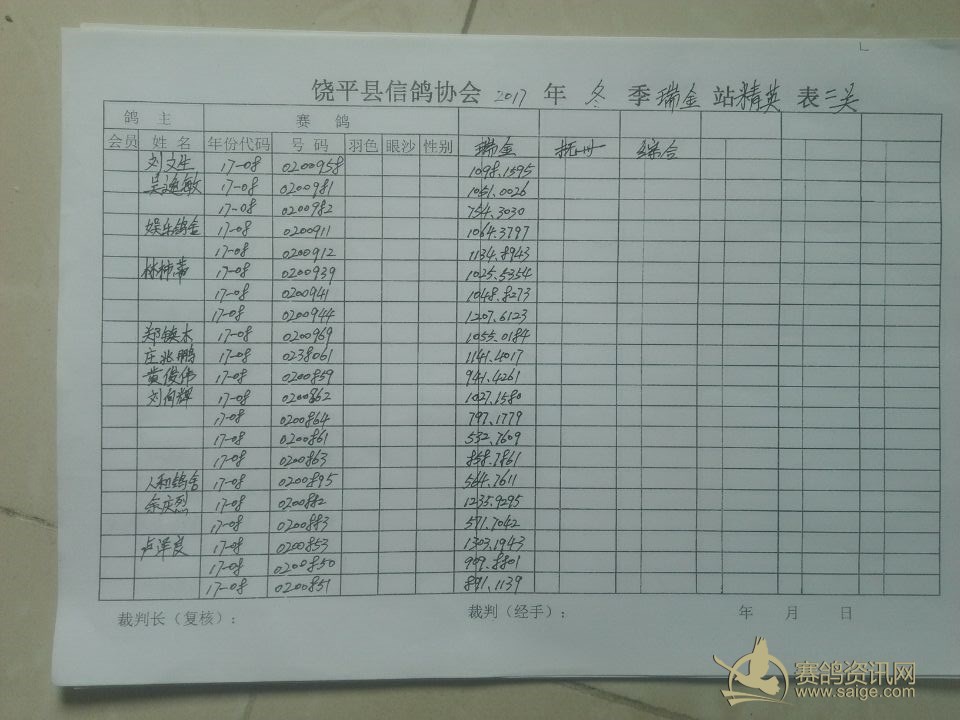 饶平县信鸽协会 2017 年 冬 季 瑞金 站 精英 表 三关
鸽 主 赛 鸽
会员 姓 名 年份代码 号 码 羽色 眼沙 性别 瑞金 抚州 综合
刘文生 17-08 0200958 1098.1595
吴逸敏 17-08 0200981 1051.0026
17-08 0200982 754.3030
娱乐鸽舍 17-08 0200911 1064.3797
17-08 0200912 1134.8943
17-08 0200939 1025.5354
17-08 0200941 1048.8273
17-08 0200944 1207.6123
郑镇木 17-08 0200969 1055.0184
庄兆鹏 17-08 0238061 1141.4017
黄俊伟 17-08 0200859 941.4261
刘向辉 17-08 0200862 1027.1580
17-08 0200864 797.1779
17-08 0200861 532.7609
17-08 0200863 858.7861
人和鸽舍 17-08 0200895 564.7611
余庆烈 17-08 0200882 1235.9295
17-08 0200883 571.7042
卢泽良 17-08 0200853 1303.1943
17-08 0200850 909.8801
17-08 0200851 891.1139
裁判长（复核）： 裁判（经手）： 年 月 日
赛鸽资讯网
www.saige.com